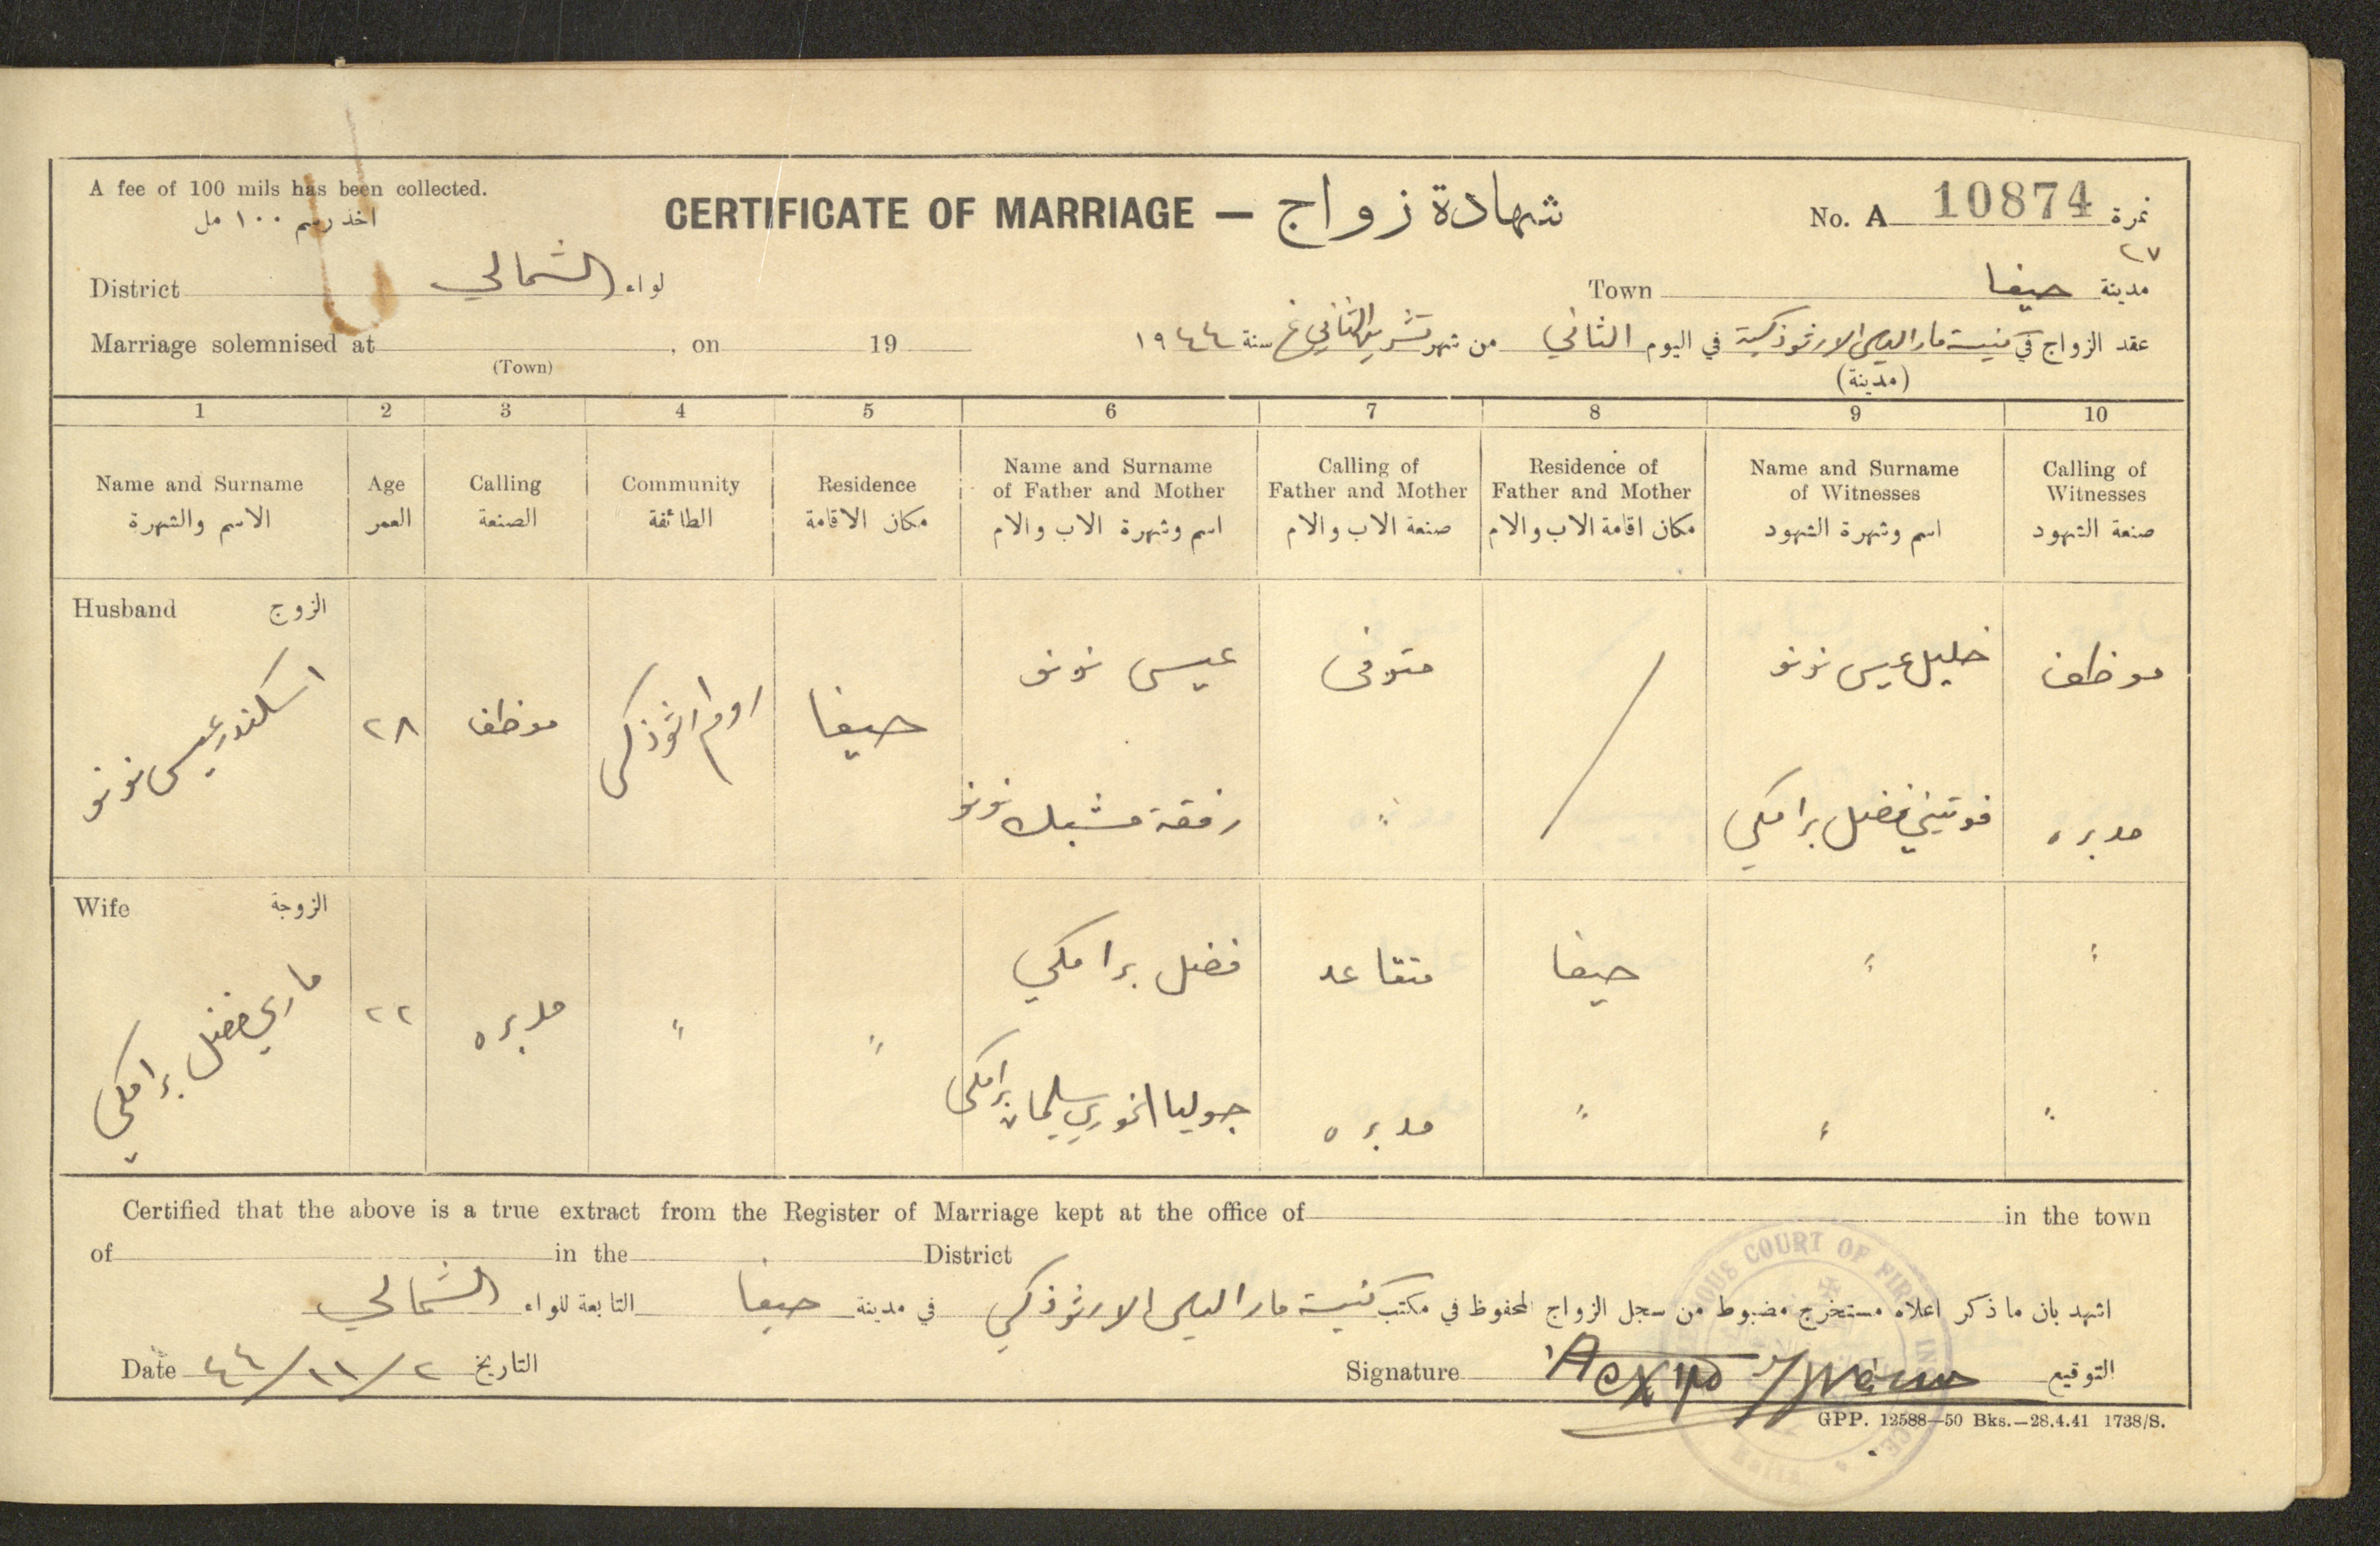 A fee of 100 mils has been collected.
اخذ رسم ١٠٠ مل
CERTIFICATE OF MARRIAGE — شهادة زواج
No. A 10874 نمرة
٢٧
District الشمالي لواء
Town حيفا مدينة
Marriage solemnised at , on 19
(Town)
عقد الزواج في كنيسة مار الياس الارثوذكسية في اليوم الثاني من شهر تشرين الثاني سنة ١٩٤٤
(مدينة)
1 2 3 4 5 6 7 8 9 10
Name and Surname Age Calling Community Residence Name and Surname of Father and Mother Calling of Father and Mother Residence of Father and Mother Name and Surname of Witnesses Calling of Witnesses
الاسم والشهرة العمر الصنعة الطائفة مكان الاقامة اسم وشهرة الاب والام صنعة الاب والام مكان اقامة الاب والام اسم وشهرة الشهود صنعة الشهود
Husband الزوج
اسكندر عيسى نونو ٢٨ موظف اروام ارثوذكس حيفا عيسى نونو متوفى / خليل عيسى نونو موظف
رفقة مشبك نونو " فوتيني فضل برامكي مدبره
Wife الزوجة
ماري فضل برامكي ٢٢ مدبره " " فضل برامكي متقاعد حيفا " "
جوليا الخوري سليمان برامكي مدبره " " "
Certified that the above is a true extract from the Register of Marriage kept at the office of in the town
of in the District
اشهد بان ما ذكر اعلاه مستخرج مضبوط من سجل الزواج المحفوظ في مكتب كنيسة مار الياس الارثوذكسي في مدينة حيفا التابعة للواء الشمالي
Date ٢/١١/٤٤ التاريخ
Signature التوقيع
COURT OF FIRST INSTANCE
Haifa
GPP. 12588—50 Bks.—28.4.41 1738/S.